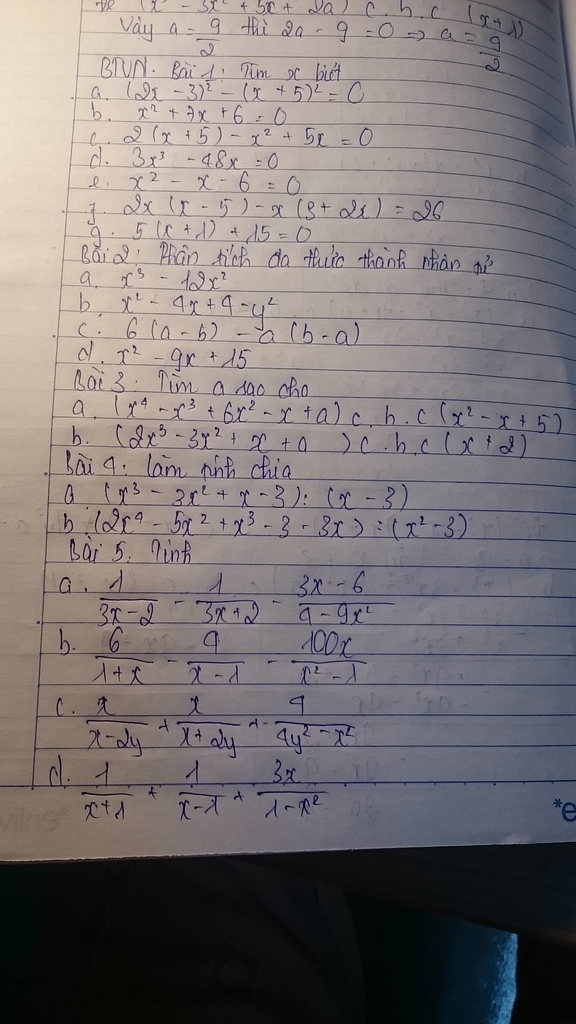 (x³ - 3x² + 5x + 2a) c.h.c (x+1)
Vậy a = 9/2 thì 2a - 9 = 0 ⇒ a = 9/2
BTVN. Bài 1: Tìm x biết
a. (2x - 3)² - (x + 5)² = 0
b. x² + 7x + 6 = 0
c. 2(x + 5) - x² + 5x = 0
d. 3x³ - 48x = 0
e. x² - x - 6 = 0
f. 2x (x - 5) - x (3 + 2x) = 26
g. 5(x + 1) + 15 = 0
Bài 2: Phân tích đa thức thành nhân tử
a. x³ - 12x²
b. x² - 4x + 4 - y²
c. 6 (a - b) - a (b - a)
d. x² - 9x + 15
Bài 3: Tìm a sao cho
a. (x⁴ - x³ + 6x² - x + a) c.h.c (x² - x + 5)
b. (2x³ - 3x² + x + a) c.h.c (x + 2)
Bài 4: làm tính chia
a. (x³ - 3x² + x - 3) : (x - 3)
b. (2x⁴ - 5x² + x³ - 3 - 3x) : (x² - 3)
Bài 5. Tính
a. 1/(3x - 2) - 1/(3x + 2) - (3x - 6)/(4 - 9x²)
b. 6/(1 + x) - 4/(x - 1) - 100x/(x² - 1)
c. x/(x - 2y) + x/(x + 2y) + 4/(4y² - x²)
d. 1/(x + 1) + 1/(x - 1) + 3x/(1 - x²)
*e